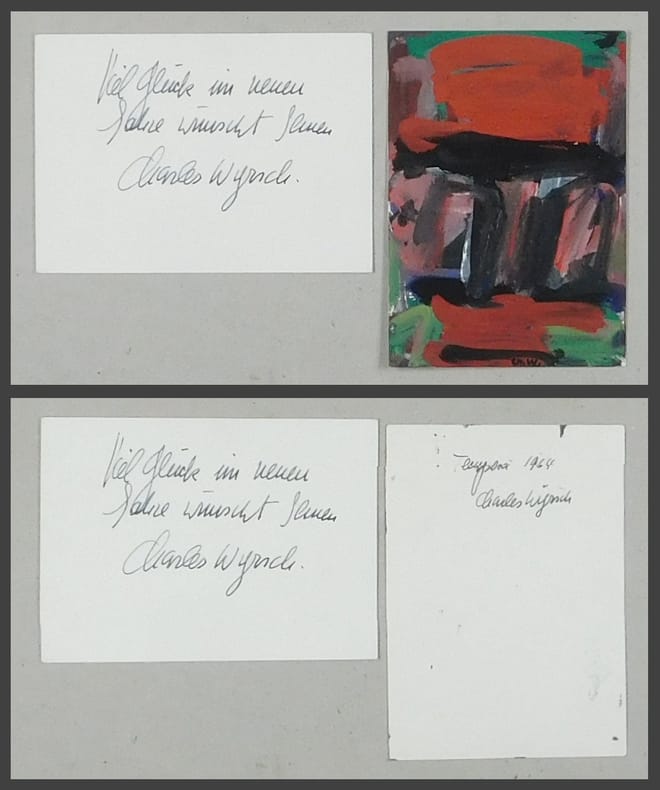 Viel Glück im neuen
Jahre wünscht Ihnen
Charles Wyrsch.
Ch.W.
Viel Glück im neuen
Jahre wünscht Ihnen
Charles Wyrsch.
Tempera 1964
Charles Wyrsch